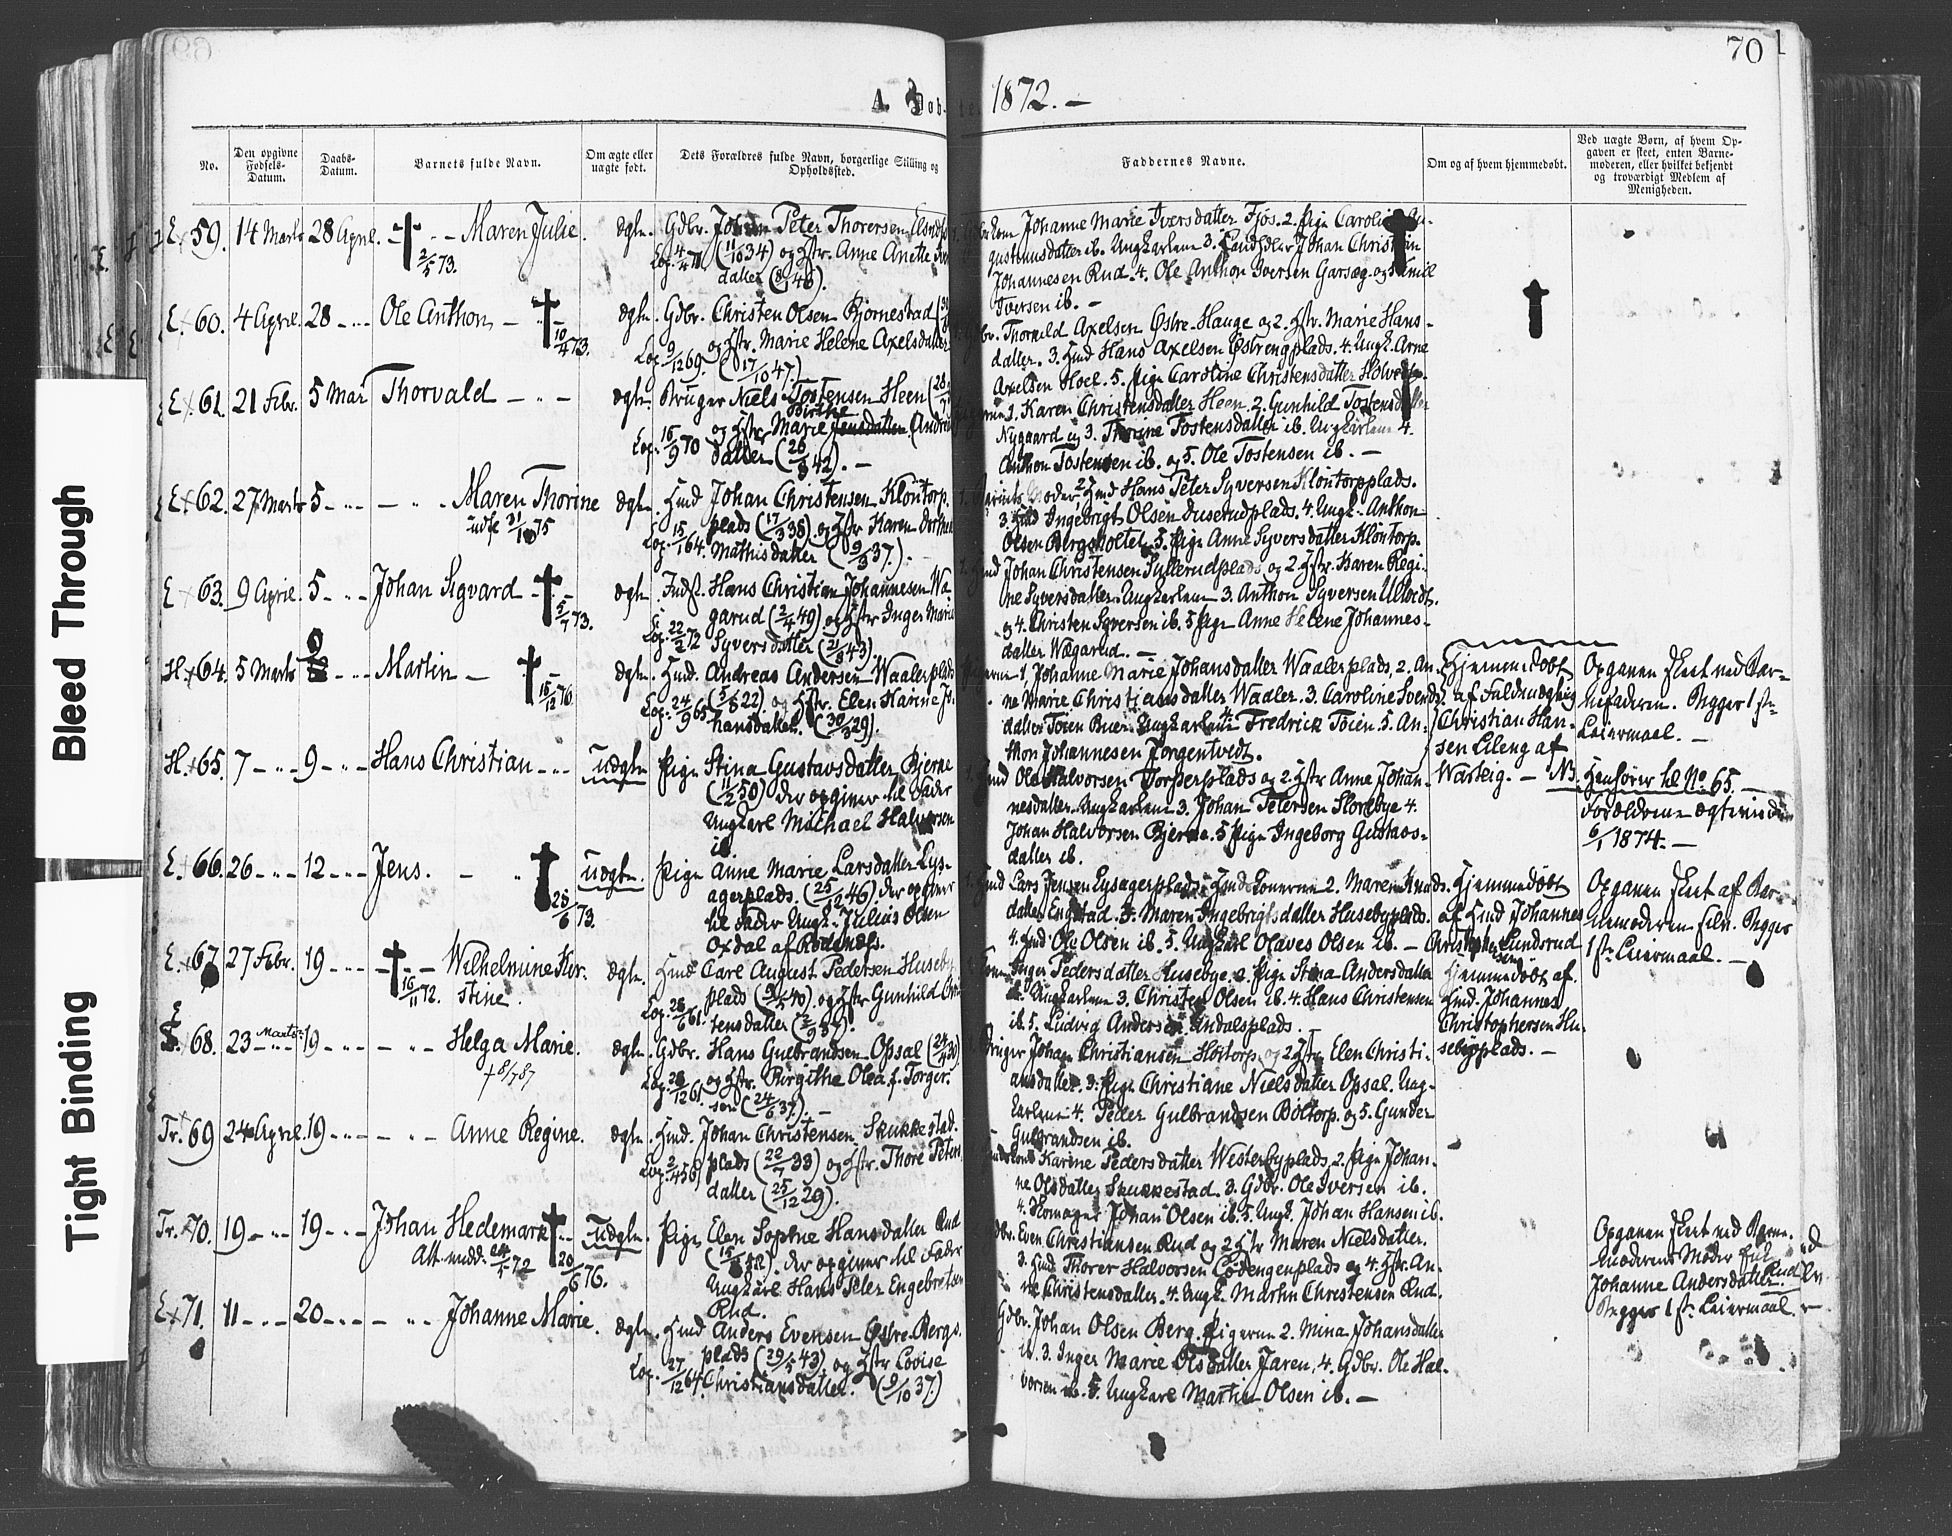 70
A. Døb- te 1872. —
No.
Den opgivne Fødsels-Datum.
Daabs-Datum.
Barnets fulde Navn.
Om ægte eller uægte født.
Dets Forældres fulde Navn, borgerlige Stilling og Opholdssted.
Faddernes Navne.
Om og af hvem hjemmedøbt.
Ved uægte Børn, af hvem Opgaven er skeet, enten Barnemoderen, eller hvilket bekjendt og troværdigt Medlem af Menigheden.
Bleed Through
Tight Binding
E 59. 14 Marts 28 April. Maren Julie. ægte. Gdbr. Johan Peter Thorersen
2/5 73.
Log. 4/4 71. (11/10 34) og Hstr. Anne Anette Iversdatter
Johanne Marie Iversdatter Fjøs. 2. Pige Caroline
gustinusdatter ib. Ungkarlene 3. Landhdler Johan Christian
Johannesen Rud. 4. Ole Anthon Iversen Garsæg og Emil
Iversen ib. —
E 60. 4 April. 28 Ole Anthon ægte. Gdbr. Christen Olsen Bjørnestad
10/4 73.
og Hstr. Marie Helene Axelsdatter
Log. 9/12 69. (17/10 47.)
Thorvild Axelsen Østre-Hauge og 2. Hstr. Marie Hans-
datter. 3. Hmd Hans Axelsen Østrengplads. 4. Ungk. Arne
Axelsen Hoel. 5. Pige Caroline Christensdatter
E 61. 21 Febr. 5 Mai Thorvald ægte. Bruger Niels Tostensen Heen
og Hstr. Marie Birthe Jensdatter (Andreas
Log. 16/9 70 datter (26/8 42). —
1. Karen Christensdatter Heen. 2. Gunhild Tostensdatter
Nygaard og 3. Thorine Tostensdatter ib. Ungkarlene 4.
Anthon Tostensen ib. og 5. Ole Tostensen ib. —
E 62. 27 Marts 5 Maren Thorine ægte. Hmd Johan Christensen Klontorp
plads (17/3 38) og Hstr. Karen Dorthea
Log. 15/1 64. Mathisdatter (9/3 37). —
Moder 2 Hmd Hans Peter Syversen Klontorpplads.
3 Hmd Ingebrigt Olsen Duserudplads. 4. Ungk. Anthon
Olsen Bergsholtet. 5. Pige Anne Syversdatter Klontorp.
E 63. 9 April. 5 Johan Sigvard ægte Indst. Hans Christian Johannesen Wa-
5/7 73.
garud (2/4 49) og Hstr Inger Marie
Log. 22/2 72 Syversdatter (21/8 43)
Johan Christensen Tyllerudplads og 2. Hstr. Karen Regi-
ne Syversdatter. Ungkarlene 3. Anthon Syversen Ulltvedt.
og 4. Christen Syversen ib. 5 Pige Anne Helene Johannes-
datter Wægarud. —
H. 64. 5 Marts 9 Martin ægte. Hmd. Andreas Andersen Waalerplads
15/12 76.
Log. 24/9 65 (5/8 22). og Hstr. Elen Karine Jo-
hansdatter. (30/3 29).
1. Johanne Marie Johansdatter Waalerplads, 2. An-
ne Marie Christiansdatter Waaler. 3. Caroline Svends-
datter Toien Buer. Ungkarlene 4 Fredrick Toien 5. An-
thon Johannesen Jørgentvedt.
Hjemmedøbt
af Faldmægtig
Christian Han-
sen Lileng af
Warteig. —
Opgaven skeet ved Bar-
nefaderen. Begges 1ste
Leiermaal. —
NB. Henhører til No 65. —
Forældrene ægteviede
6/1 1874. —
H. 65. 7 9 Hans Christian uægte Pige Stina Gustavsdatter Bjerne
(11/2 50) der opgiver til Fader
Ungkarl Michael Halvorsen
ib.
Ole Halvorsen Torperplads og 2 Hstr Anne Johan-
nesdatter. Ungkarlene 3. Johan Petersen Storebye 4.
Johan Halvorsen Bjerne. 5 Pige Ingeborg Gustavs-
datter ib.
E 66. 26 12 Jens. uægte. Pige Anne Marie Larsdatter Lys-
25/6 73.
agerplads. (25/12 46). der opgiver
til Fader Ungk. Julius Olsen
Oxdal af Rødenæs.
Lars Jensen Lysagerplads. Hmdskonerne 2. Maren Knuds-
datter Engstad. 3. Maren Ingebrigtsdatter Husebyplads.
4. Hmd Ole Olsen ib. 5. Ungkarl Olaves Olsen ib. —
Hjemmedøbt
af Hmd Johannes
Christophersen Lundsrud
Opgaven skeet af Bar-
nemoderen selv. Begges
1ste Leiermaal. —
E 67 27 Febr. 19 Wilhelmine Kir- ægte. Hmd Carl August Pedersen Huseby
16/11 72. stine.
plads (3/5 40) og Hstr Gunhild Chris-
Log. 26/6 61. tensdatter (2/9 37).
Inger Pedersdatter Husebye. 2. Pige Stina Andersdatter
ib. Ungkarlene 3. Christen Olsen ib. 4. Hans Christensen
ib. 5. Ludvig Andersen Undalsplads.
Hjemmedøbt af
Hmd. Johannes
Christophersen Hu-
sebyplads. —
68. 23 Marts 19 Helga Marie. ægte. Gdbr. Hans Gulbrandsen Opsal (24/4 30)
† 8/7 87
og Hstr. Birgithe Olea f. Torger-
Log. 26/12 61. sen (24/6 37). —
Johan Christiansen Høitorp og 2 Hstr. Elen Christi-
ansdatter. 3. Pige Christiane Nielsdatter Opsal. Ung-
karlene 4. Peder Gulbrandsen Bøltorp. og 5. Gunder
Gulbrandsen ib.
Tr. 69 24 April. 19 Anne Regine. ægte. Hmd. Johan Christensen Skukkestad-
plads (22/7 33) og Hstr. Thore Peters
Log. 2/4 58. datter (25/12 29).
Karine Pedersdatter Westerbyplads. 2. Pige Johan-
ne Olsdatter Skukkestad. 3. Gdbr. Ole Iversen ib.
4. Skomager Johan Olsen ib. 5. Ungk. Johan Hansen ib.
Tr. 70. 19 19 Johan Hedemark uægte. Pige Elen Sophie Hansdatter Rud
Att. medd. 24/5 72
20/6 76.
der opgiver til Fader
Ungkarl Hans Peter Engebretsen
Rud.
Even Christiansen Rud og 2 Hstr Maren Nielsdatter.
3. Hmd Thorer Halvorsen Lødengenplads og 4. Hstr. An-
ne Christensdatter. 4. Ungk. Martin Christensen Rud.
Opgaven skeet ved Barne-
moderens Moder
Johanne Andersdatter Rud
Begges 1ste Leiermaal. —
E 71. 11 20 Johanne Marie. ægte. Hmd Anders Evensen Østre-Bergs-
plads (29/5 43) og Hstr Lovise
Log. 27/12 64 Christiansdatter. (9/10 37.)
Gdbr. Johan Olsen Berg. Pigerne 2. Mina Johansdatter
ib. 3. Inger Marie Olsdatter Jaren. 4. Gdbr. Ole Hal-
vorsen ib. 5. Ungkarl Martin Olsen ib. —